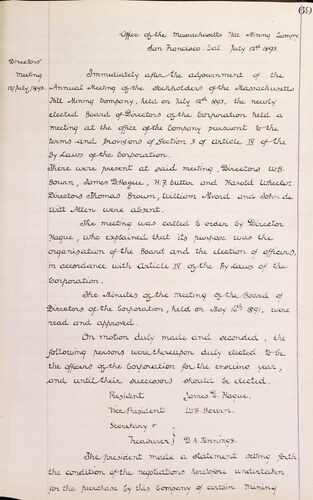 69
Office of the Massachusetts Hill Mining Compy
San Francisco. Cal. July 12th 1893.
Directors'
Meeting
12/July/1893.
Immediately after the adjournment of the
Annual Meeting of the Stockholders of the Massachusetts
Hill Mining Company, held on July 12th 1893, the newly
elected Board of Directors of the Corporation held a
meeting at the office of the Company pursuant to the
terms and provisions of Section 3 of Article IV of the
By Laws of the Corporation.
There were present at said meeting, Directors W.B.
Bourn, James D. Hague, H.F. Sutter and Harold Wheeler.
Directors Thomas Brown, William Alvord and John de
Witt Allen were absent.
The meeting was called to order by Director
Hague, who explained that its purpose was the
organisation of the Board and the election of officers,
in accordance with Article IV of the By Laws of the
Corporation.
The Minutes of the meeting of the Board of
Directors of the Corporation, held on May 16th 1891, were
read and approved.
On motion duly made and seconded, the
following persons were thereupon duly elected to be
the officers of the Corporation for the ensuing year,
and until their successors should be elected.
President James D. Hague.
Vice President W.B. Bourn.
Secretary &
Treasurer } D.A. Jennings.
The president made a statement setting forth
the condition of the negotiations heretofore undertaken
for the purchase by this Company of certain Mining